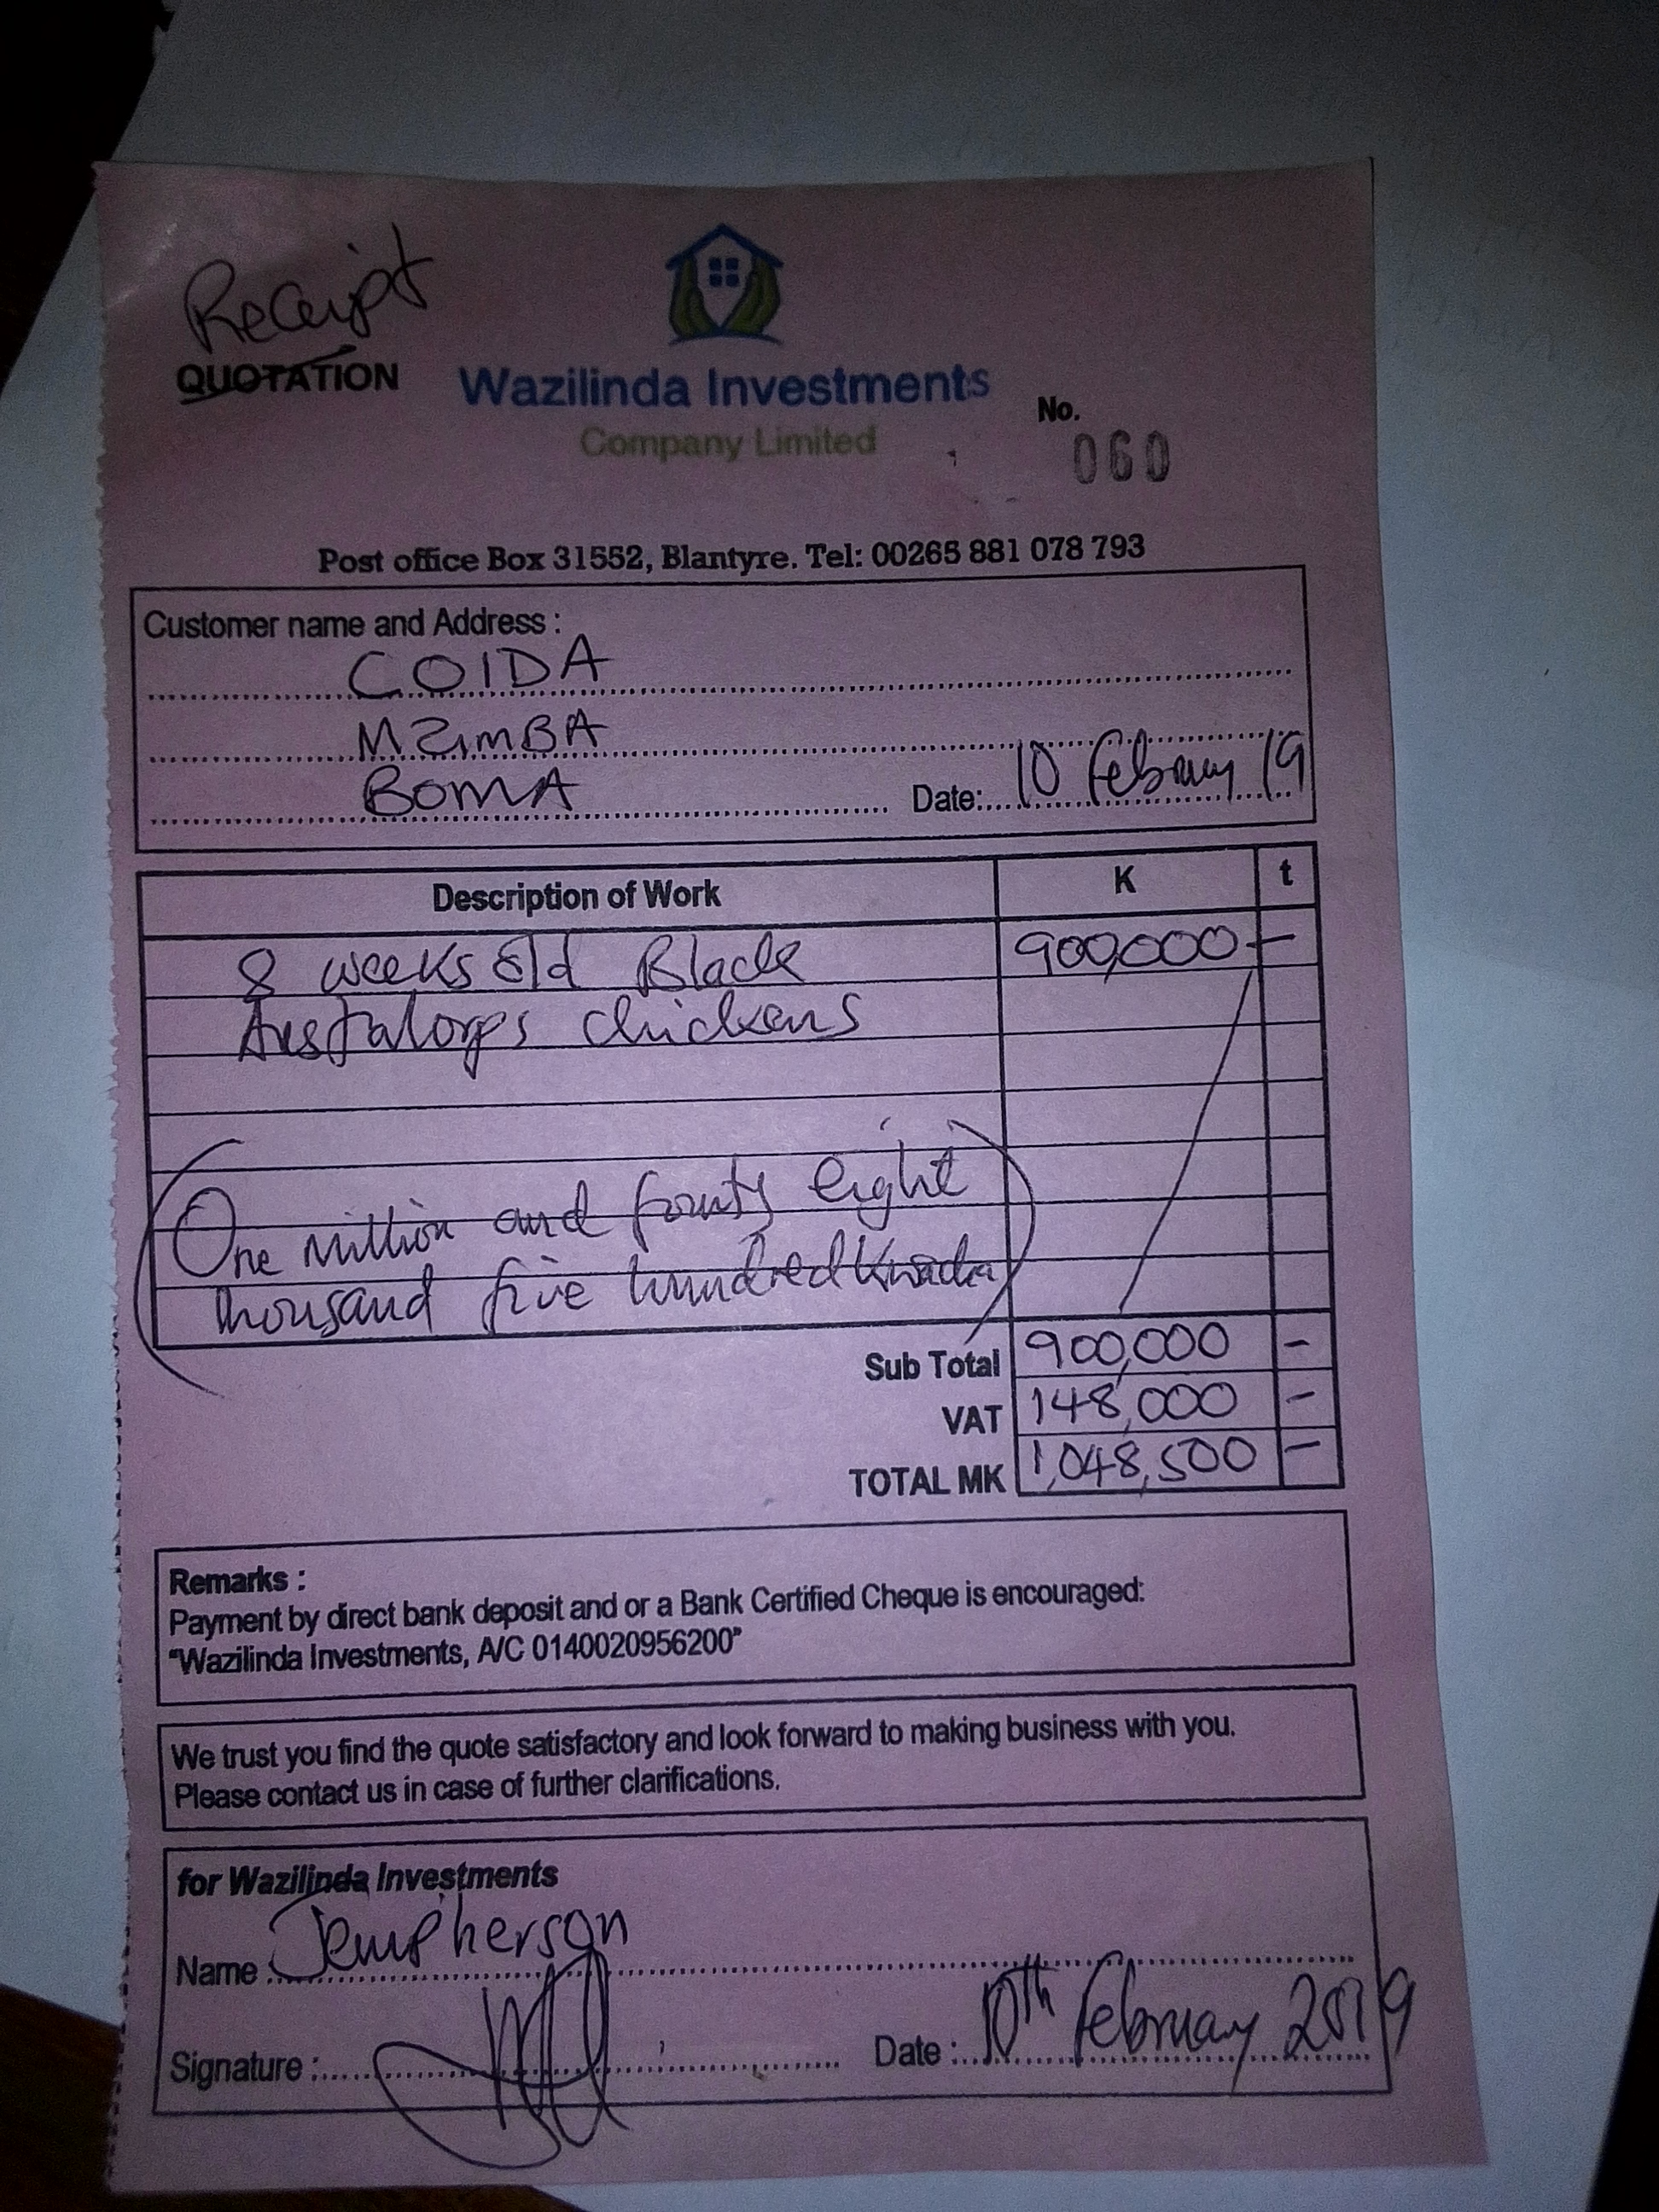 Receipt
QUOTATION
Wazilinda Investments
Company Limited
No.
060
Post office Box 31552, Blantyre. Tel: 00265 881 078 793
Customer name and Address :
COIDA
MZIMBA
BOMA
Date: 10 February 19
Description of Work K t
8 weeks old Black 900,000 -
Australorps chickens
One million and fourty eight
thousand five hundred Kwacha
Sub Total 900,000 -
VAT 148,000 -
TOTAL MK 1,048,500 -
Remarks :
Payment by direct bank deposit and or a Bank Certified Cheque is encouraged:
"Wazilinda Investments, A/C 0140020956200"
We trust you find the quote satisfactory and look forward to making business with you.
Please contact us in case of further clarifications.
for Wazilinda Investments
Name : Jempherson
Signature : Date : 10th February 2019